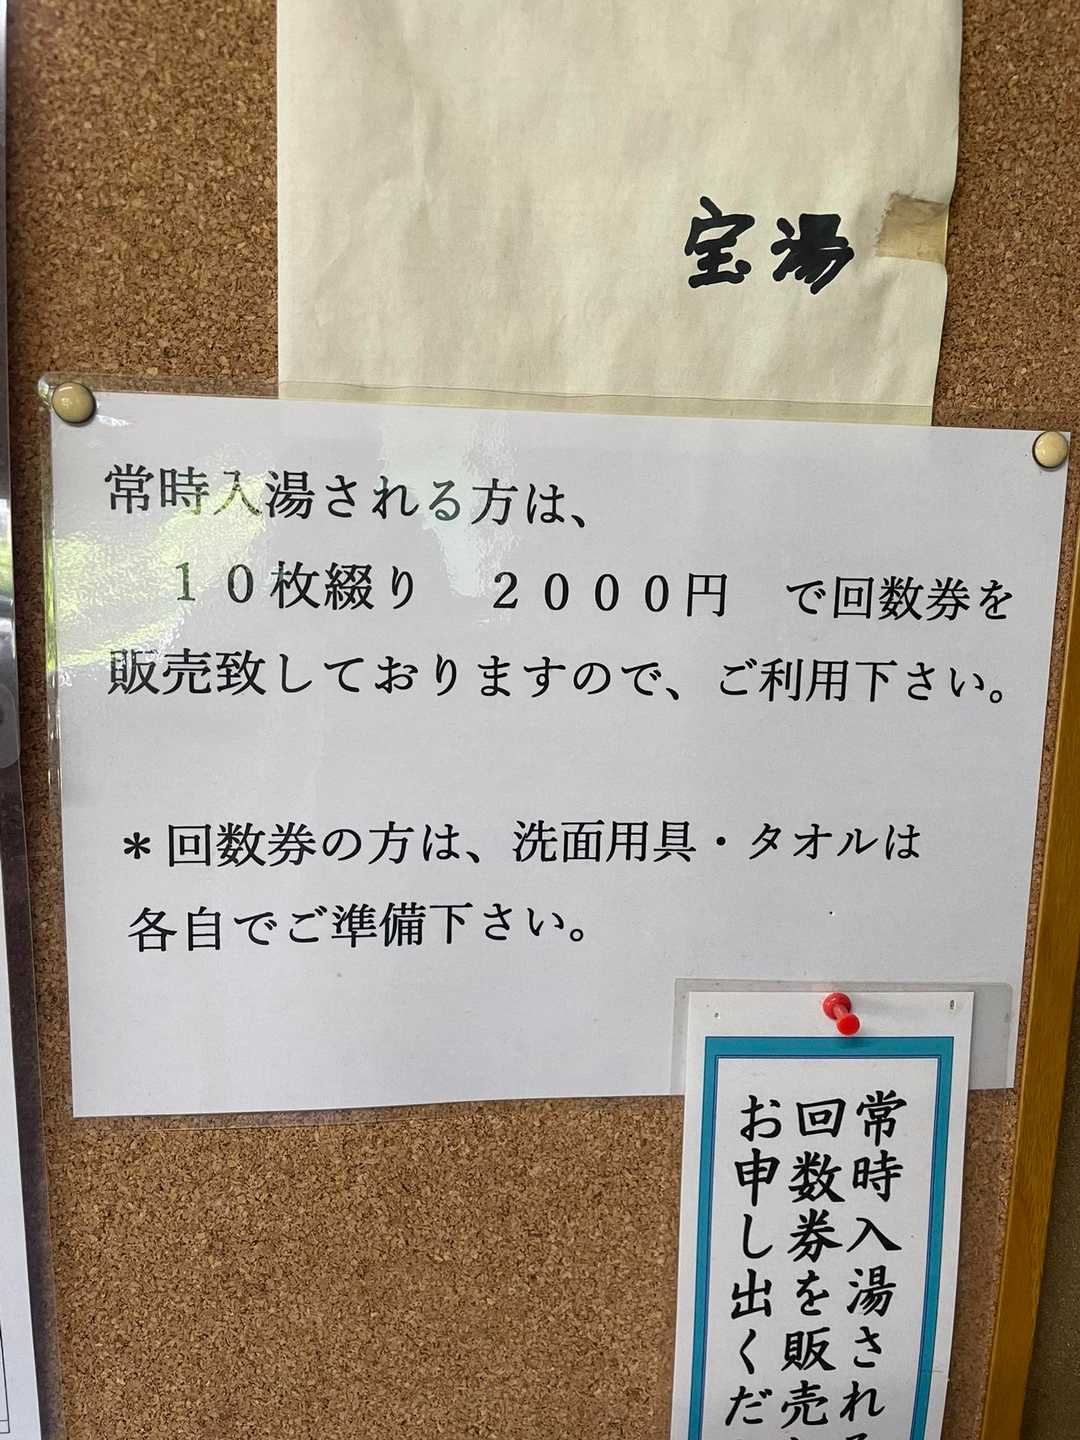 宝湯
常時入湯される方は、
１０枚綴り　２０００円　で回数券を
販売致しておりますので、ご利用下さい。
＊回数券の方は、洗面用具・タオルは
各自でご準備下さい。
常時入湯され
回数券を販売
お申し出くだ